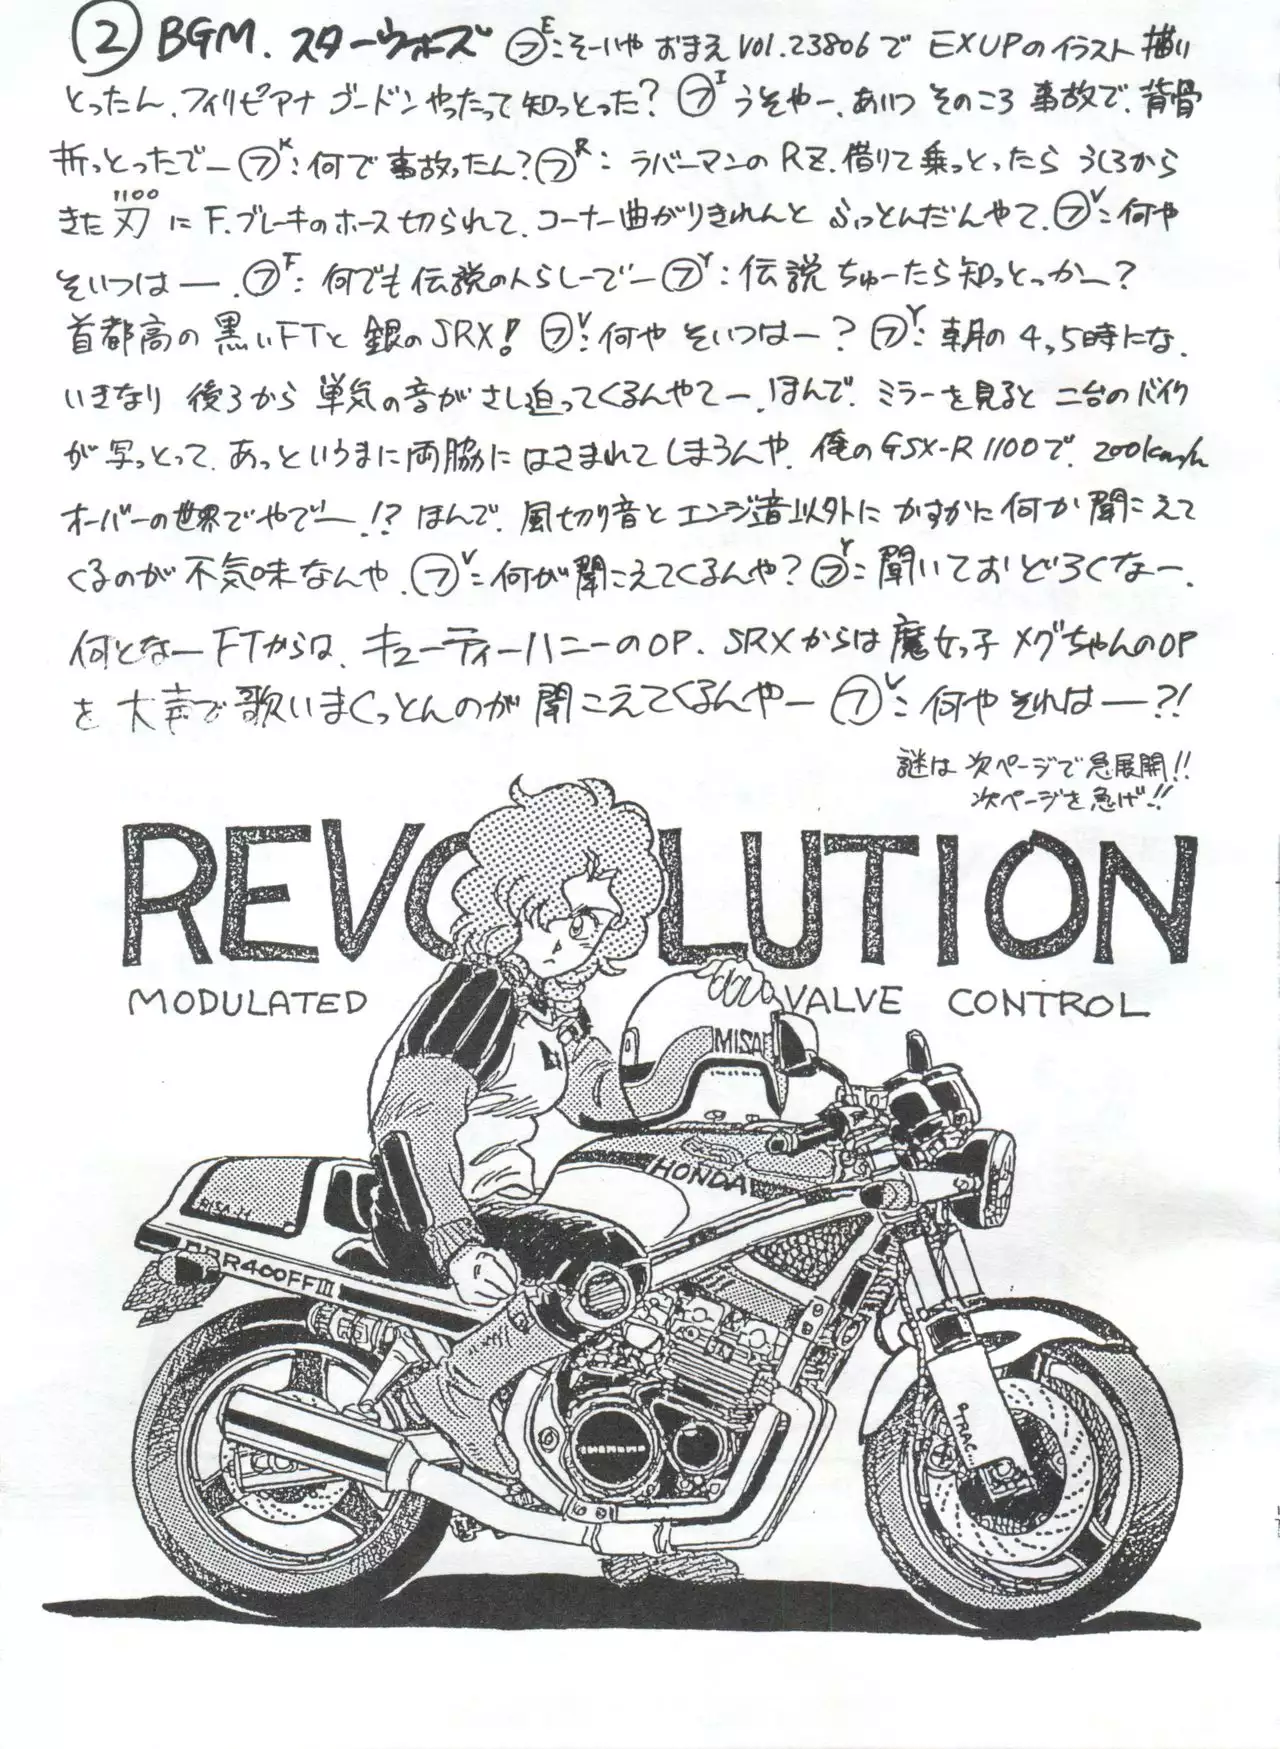 ② BGM. スターウォーズ ㋫E：そーいや おまえ Vol.23806で EXUPのイラスト 描い
とったん、フィリピアナ ゴードンやったって知っとった？ ㋫I うそやー、あいつ そのころ 事故で、背骨
折っとったでー ㋫K：何で 事故ったん？ ㋫R：ラバーマンの RZ、借りて 乗っとったら うしろから
きた 刃1100 に F.ブレーキのホース 切られて、コーナー曲がりきれんと ふっとんだんやて、㋫V：何や
そいつはー、㋫F：何でも 伝説の人らしーでー ㋫Y：伝説 ちゅーたら知っとっかー？
首都高の 黒いFTと 銀のSRX！ ㋫V：何や そいつはー？ ㋫Y：朝の 4、5時にな、
いきなり 後ろから 単気の音が さし迫ってくるんやてー、ほんで、ミラーを見ると 二台のバイク
が 写っとって、あっというまに 両脇に はさまれて しまうんや、俺の GSX-R 1100で、200km/h
オーバーの世界でやでー！？ ほんで、風切り音と エンジン音以外に かすかに 何か 聞こえて
くるのが 不気味なんや、㋫V：何が聞こえてくるんや？ ㋫Y：聞いておどろくなー、
何となー FTからは、キューティーハニーのOP、SRXからは 魔女っ子 メグちゃんのOP
を 大声で 歌いまくっとんのが 聞こえてくるんやー ㋫V：何や それはー？！
謎は 次ページで急展開！！
次ページを 急げー！！
REVOLUTION
MODULATED VALVE CONTROL
MISA
HONDA
R400FFIII
TRAC